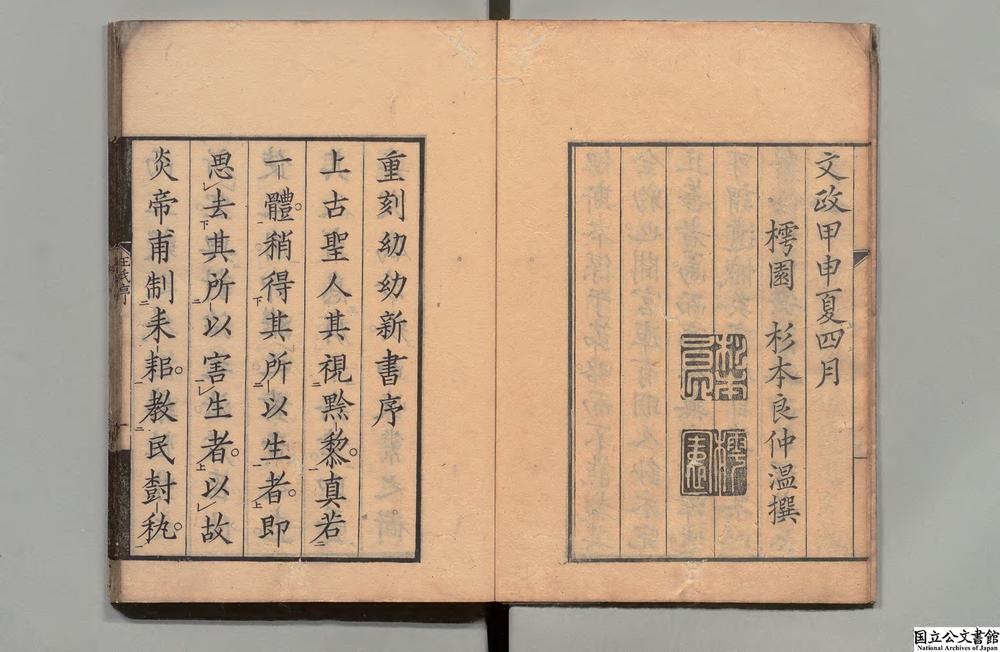 文政甲申夏四月
樗園 杉本良仲温撰
杉本
樗園
重刻幼幼新書序
上古聖人其視黔黎真若
一體稍得其所以生者即
思去其所以害生者以故
炎帝甫制耒耜教民對秇
国立公文書館
National Archives of Japan